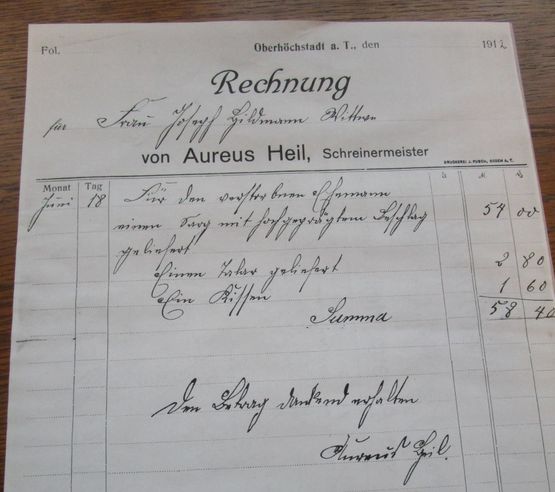 Fol.
Oberhöchstadt a. T., den 1912
Rechnung
für Frau Joseph Hildmann Wittwe
von Aureus Heil, Schreinermeister
DRUCKEREI J. PUSCH, ESSEN A. T.
Monat Tag M
Juni 18 Für den verstorbnen Ehemann
einen Sarg mit hochgeprägtem Beschlag 54 00
geliefert
Einen Talar geliefert 2 80
Ein Kissen 1 60
Summa 58 40
Den Betrag dankend erhalten
Aureus Heil.